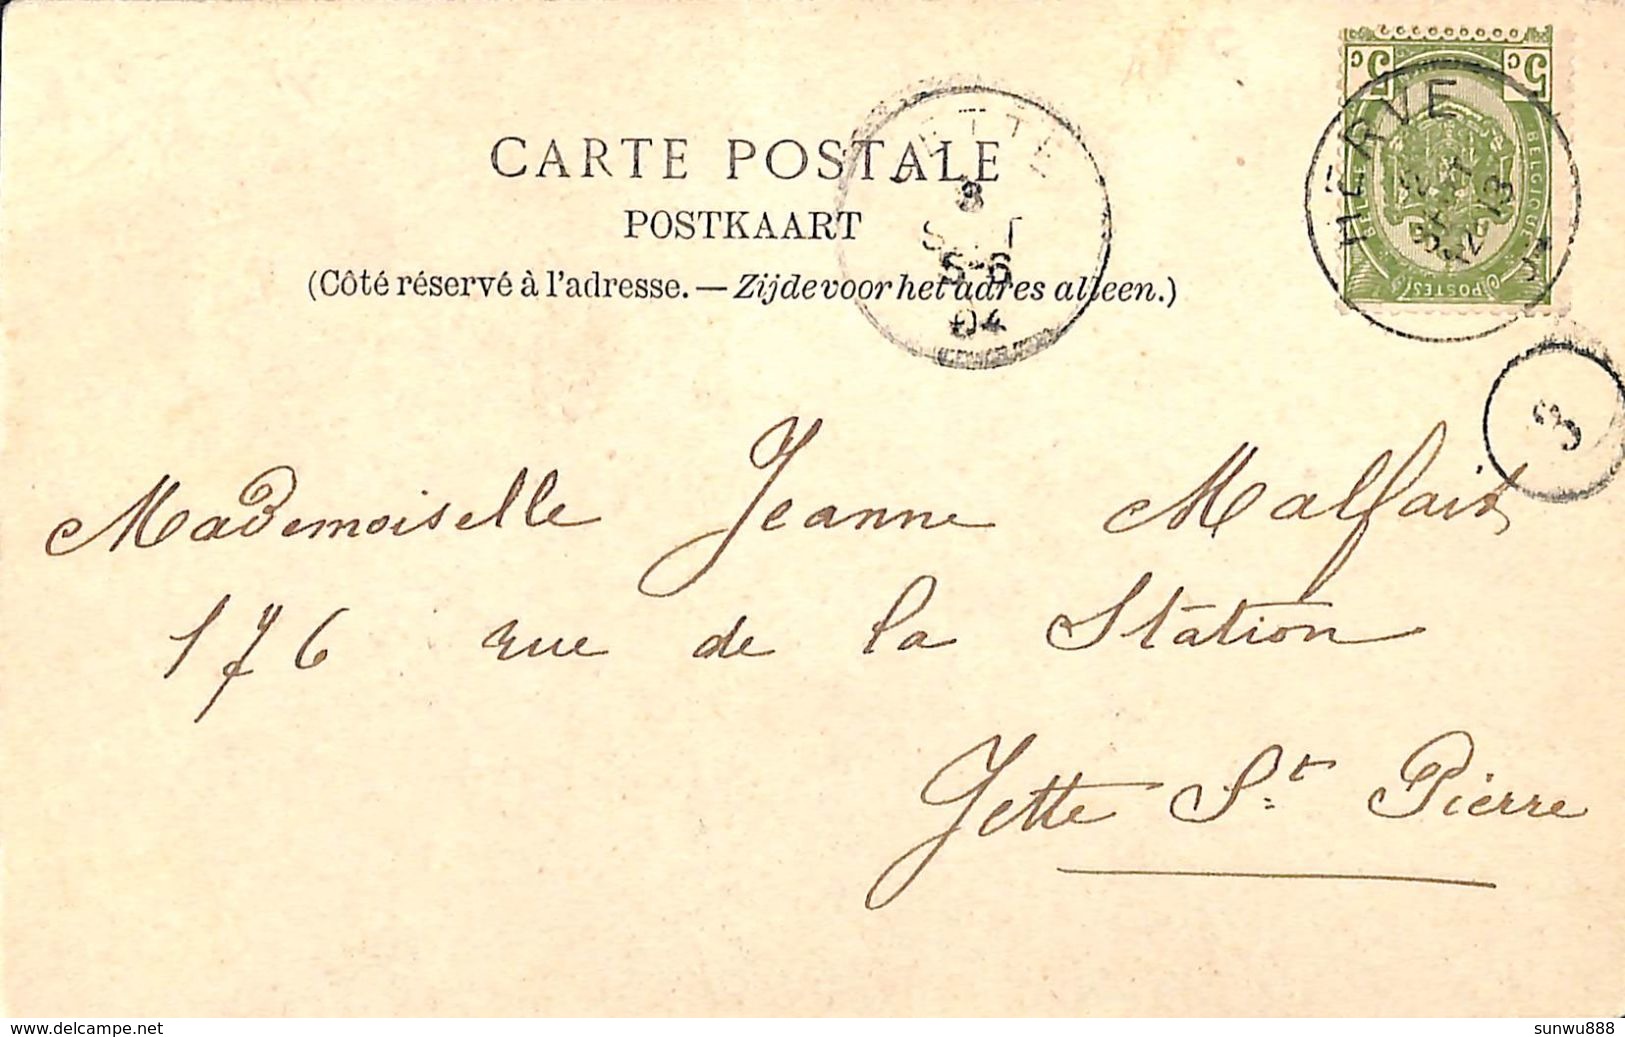 CARTE POSTALE
POSTKAART
(Côté réservé à l'adresse. — Zijde voor het adres alleen.)
JETTE
8
SEPT
5-6
04
HERVE
SEPT
12-13
5c 5c
BELGIQUE
POSTES
3
Mademoiselle Jeanne Malfait
176 rue de la Station
Jette St Pierre
www.delcampe.net
sunwu888